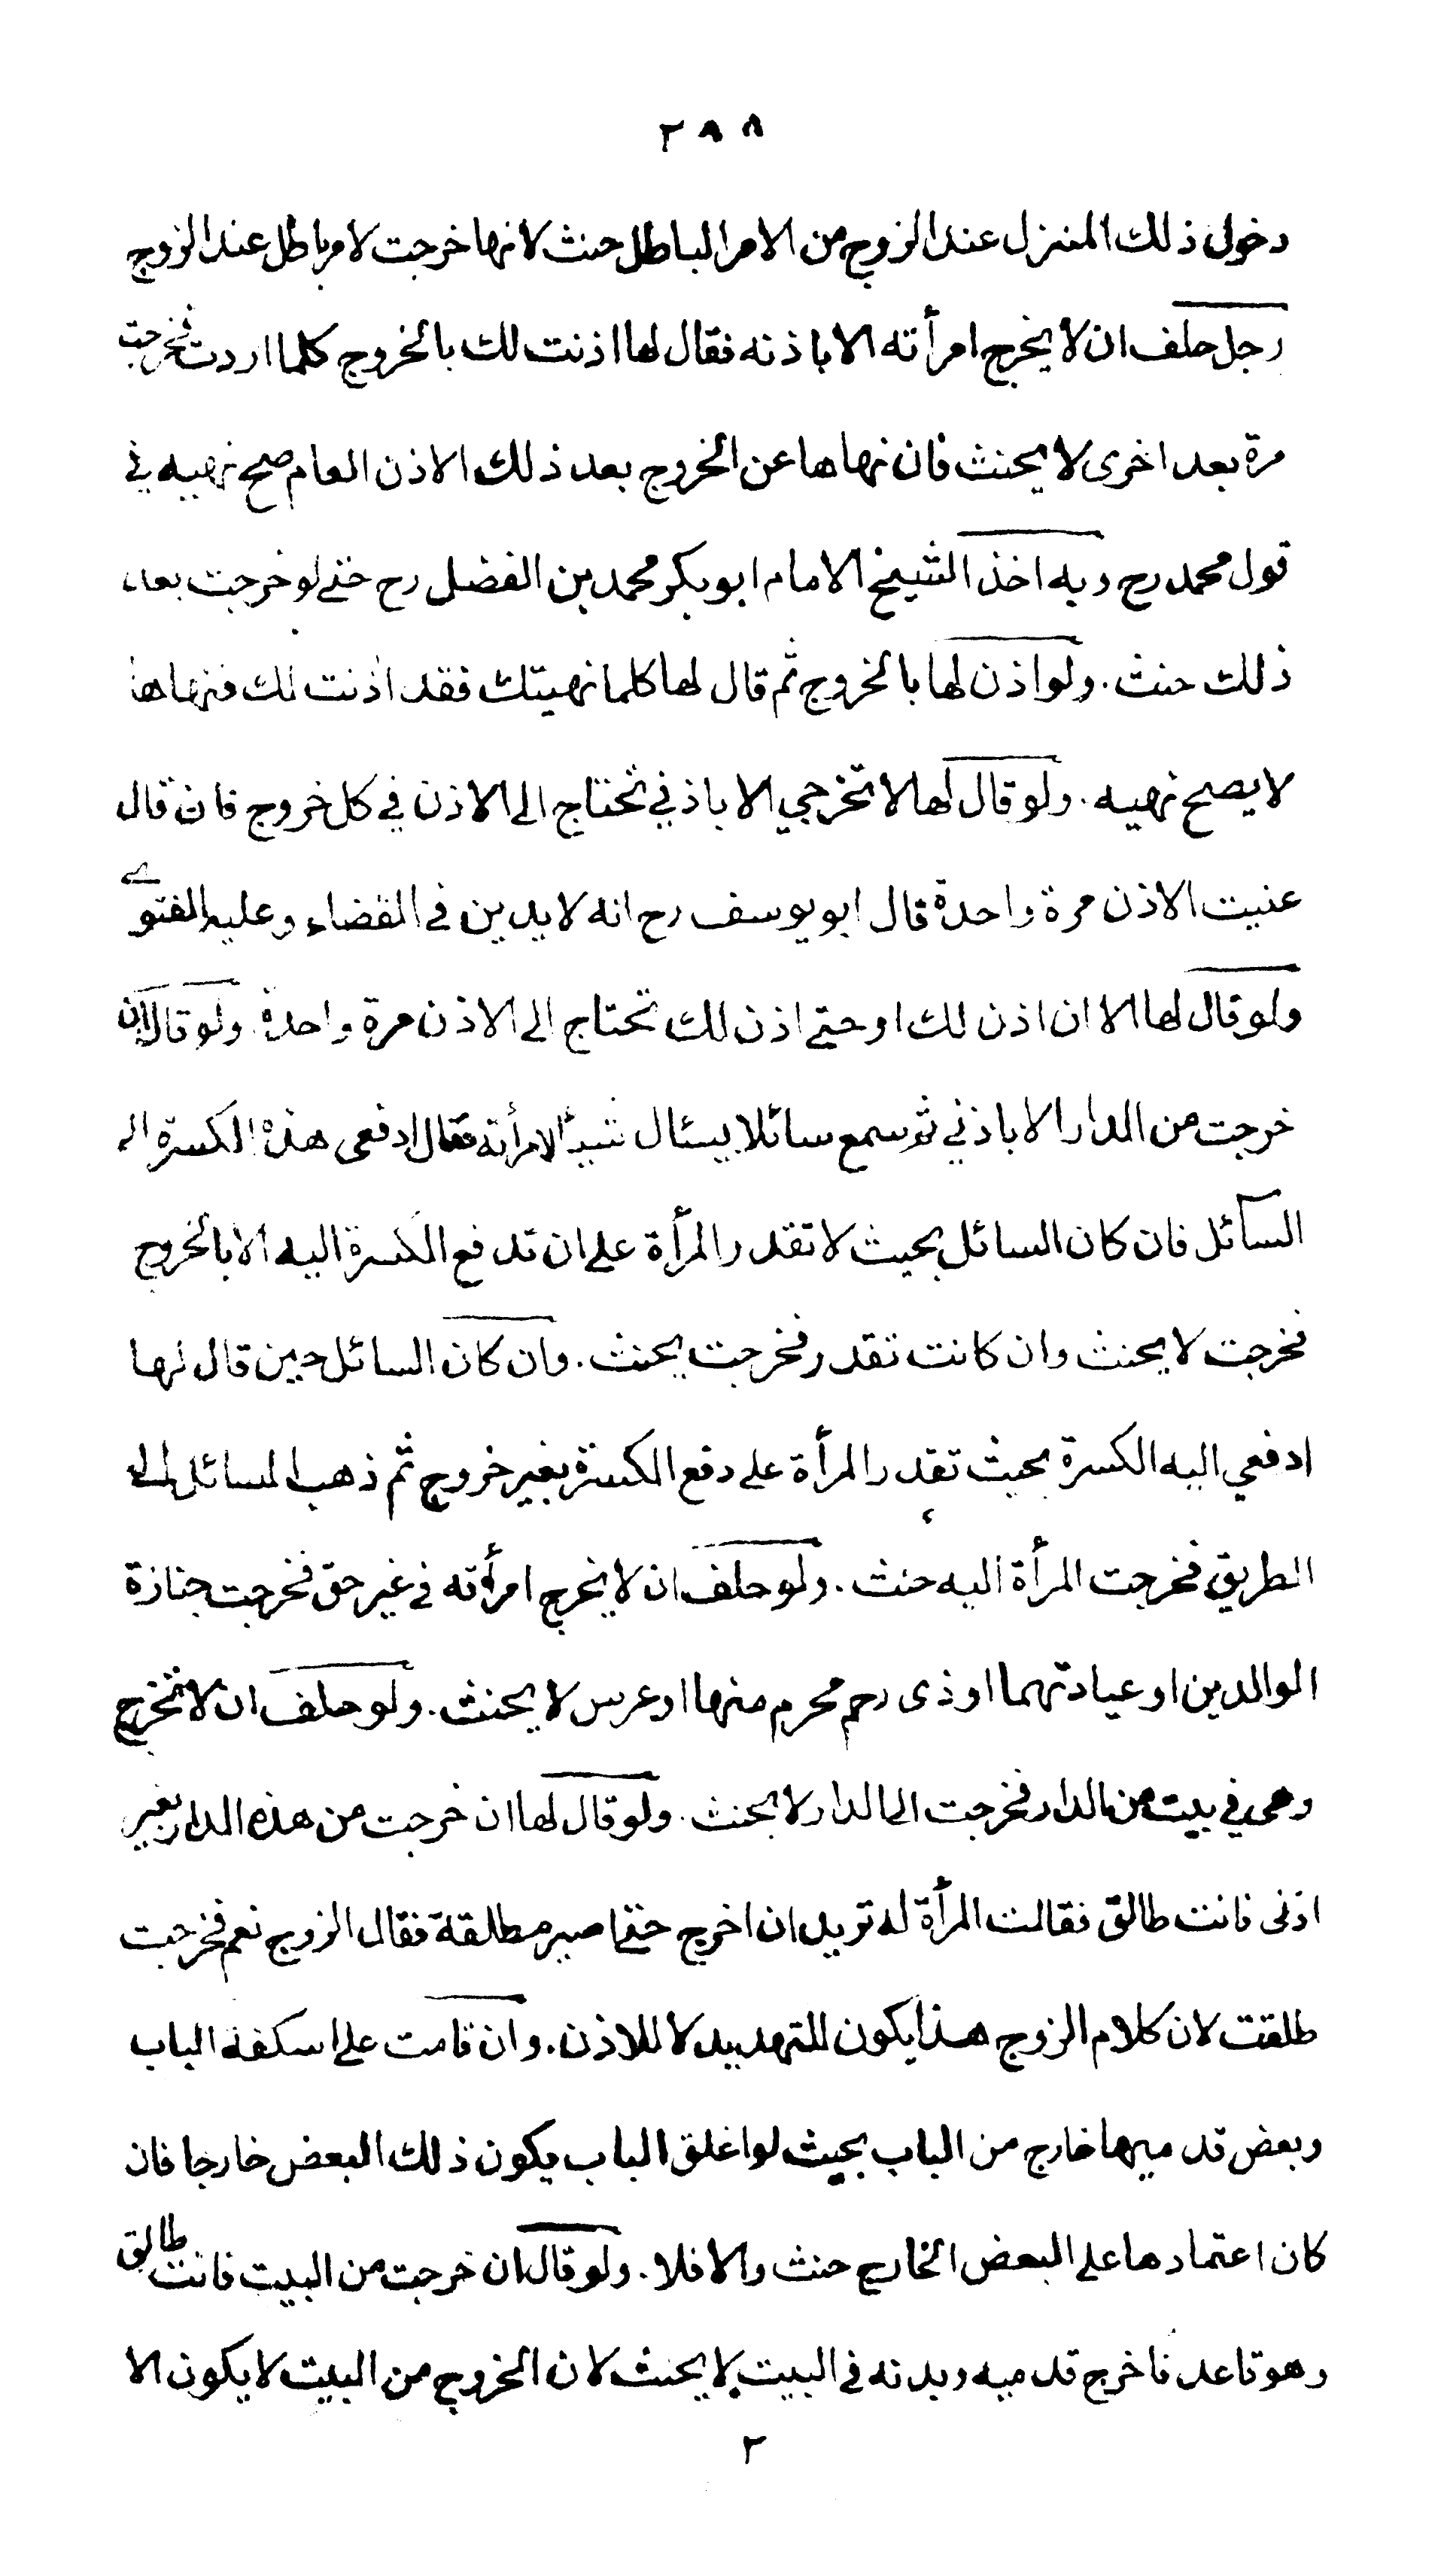 ٢٨٨
دخول ذلك المنزل عند الزوج من الامر الباطل حنث لانها خرجت لامر باطل عند الزوج
رجل حلف ان لا يخرج امرأته الا باذنه فقال لها اذنت لك بالخروج كلما اردت فخرجت
مرة بعد اخرى لا يحنث فان نهاها عن الخروج بعد ذلك الاذن العام صح نهيه في
قول محمد رح وبه اخذ الشيخ الامام ابو بكر محمد بن الفضل رح حتى لو خرجت بعد
ذلك حنث . ولو اذن لها بالخروج ثم قال لها كلما نهيتك فقد اذنت لك فنهاها
لا يصح نهيه . ولو قال لها لا تخرجي الا باذني تحتاج الى الاذن في كل خروج فان قال
عنيت الاذن مرة واحدة قال ابو يوسف رح انه لا يدين في القضاء وعليه الفتوى
ولو قال لها الا ان اذن لك او حتى اذن لك تحتاج الى الاذن مرة واحدة . ولو قال ان
خرجت من الدار الا باذني ثم سمع سائلا يسئال شيئا لامرأته فقال ادفعى هذه الكسرة الى
السائل فان كان السائل بحيث لا تقدر المرأة على ان تدفع الكسرة اليه الا بالخروج
فخرجت لا يحنث وان كانت تقدر فخرجت يحنث . وان كان السائل حين قال لها
ادفعي اليه الكسرة بحيث تقدر المرأة على دفع الكسرة بغير خروج ثم ذهب السائل الى
الطريق فخرجت المرأة اليه حنث . ولو حلف ان لا يخرج امرأته في غير حق فخرجت جنازة
الوالدين او عيادتهما او ذى رحم محرم منها او عرس لا يحنث . ولو حلف ان لا تخرج
وهى في بيت من الدار فخرجت الى الدار لا يحنث . ولو قال لها ان خرجت من هذه الدار بغير
اذنى فانت طالق فقالت المرأة له تريد ان اخرج حتى اصير مطلقة فقال الزوج نعم فخرجت
طلقت لان كلام الزوج هذا يكون للتهديد لا للاذن . وان قامت على اسكفة الباب
وبعض قدميها خارج من الباب بحيث لو اغلق الباب يكون ذلك البعض خارجا فان
كان اعتمادها على البعض الخارج حنث والا فلا . ولو قال ان خرجت من البيت فانت طالق
وهو قاعد فاخرج قدميه وبدنه في البيت لا يحنث لان الخروج من البيت لا يكون الا
٢